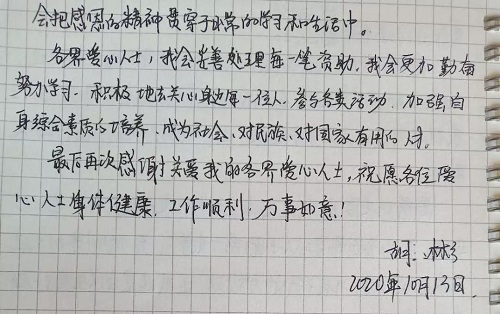 会把感恩的精神贯穿于日常的学习和生活中。
各界爱心人士，我会妥善处理每一笔资助，我会更加勤奋
努力学习，积极地去关心身边每一位人，参与各类活动，加强自
身综合素质的培养，成为社会、对民族、对国家有用的人才。
最后再次感谢关爱我的各界爱心人士，祝愿各位爱
心人士身体健康，工作顺利，万事如意！
胡彬
2020年10月13日